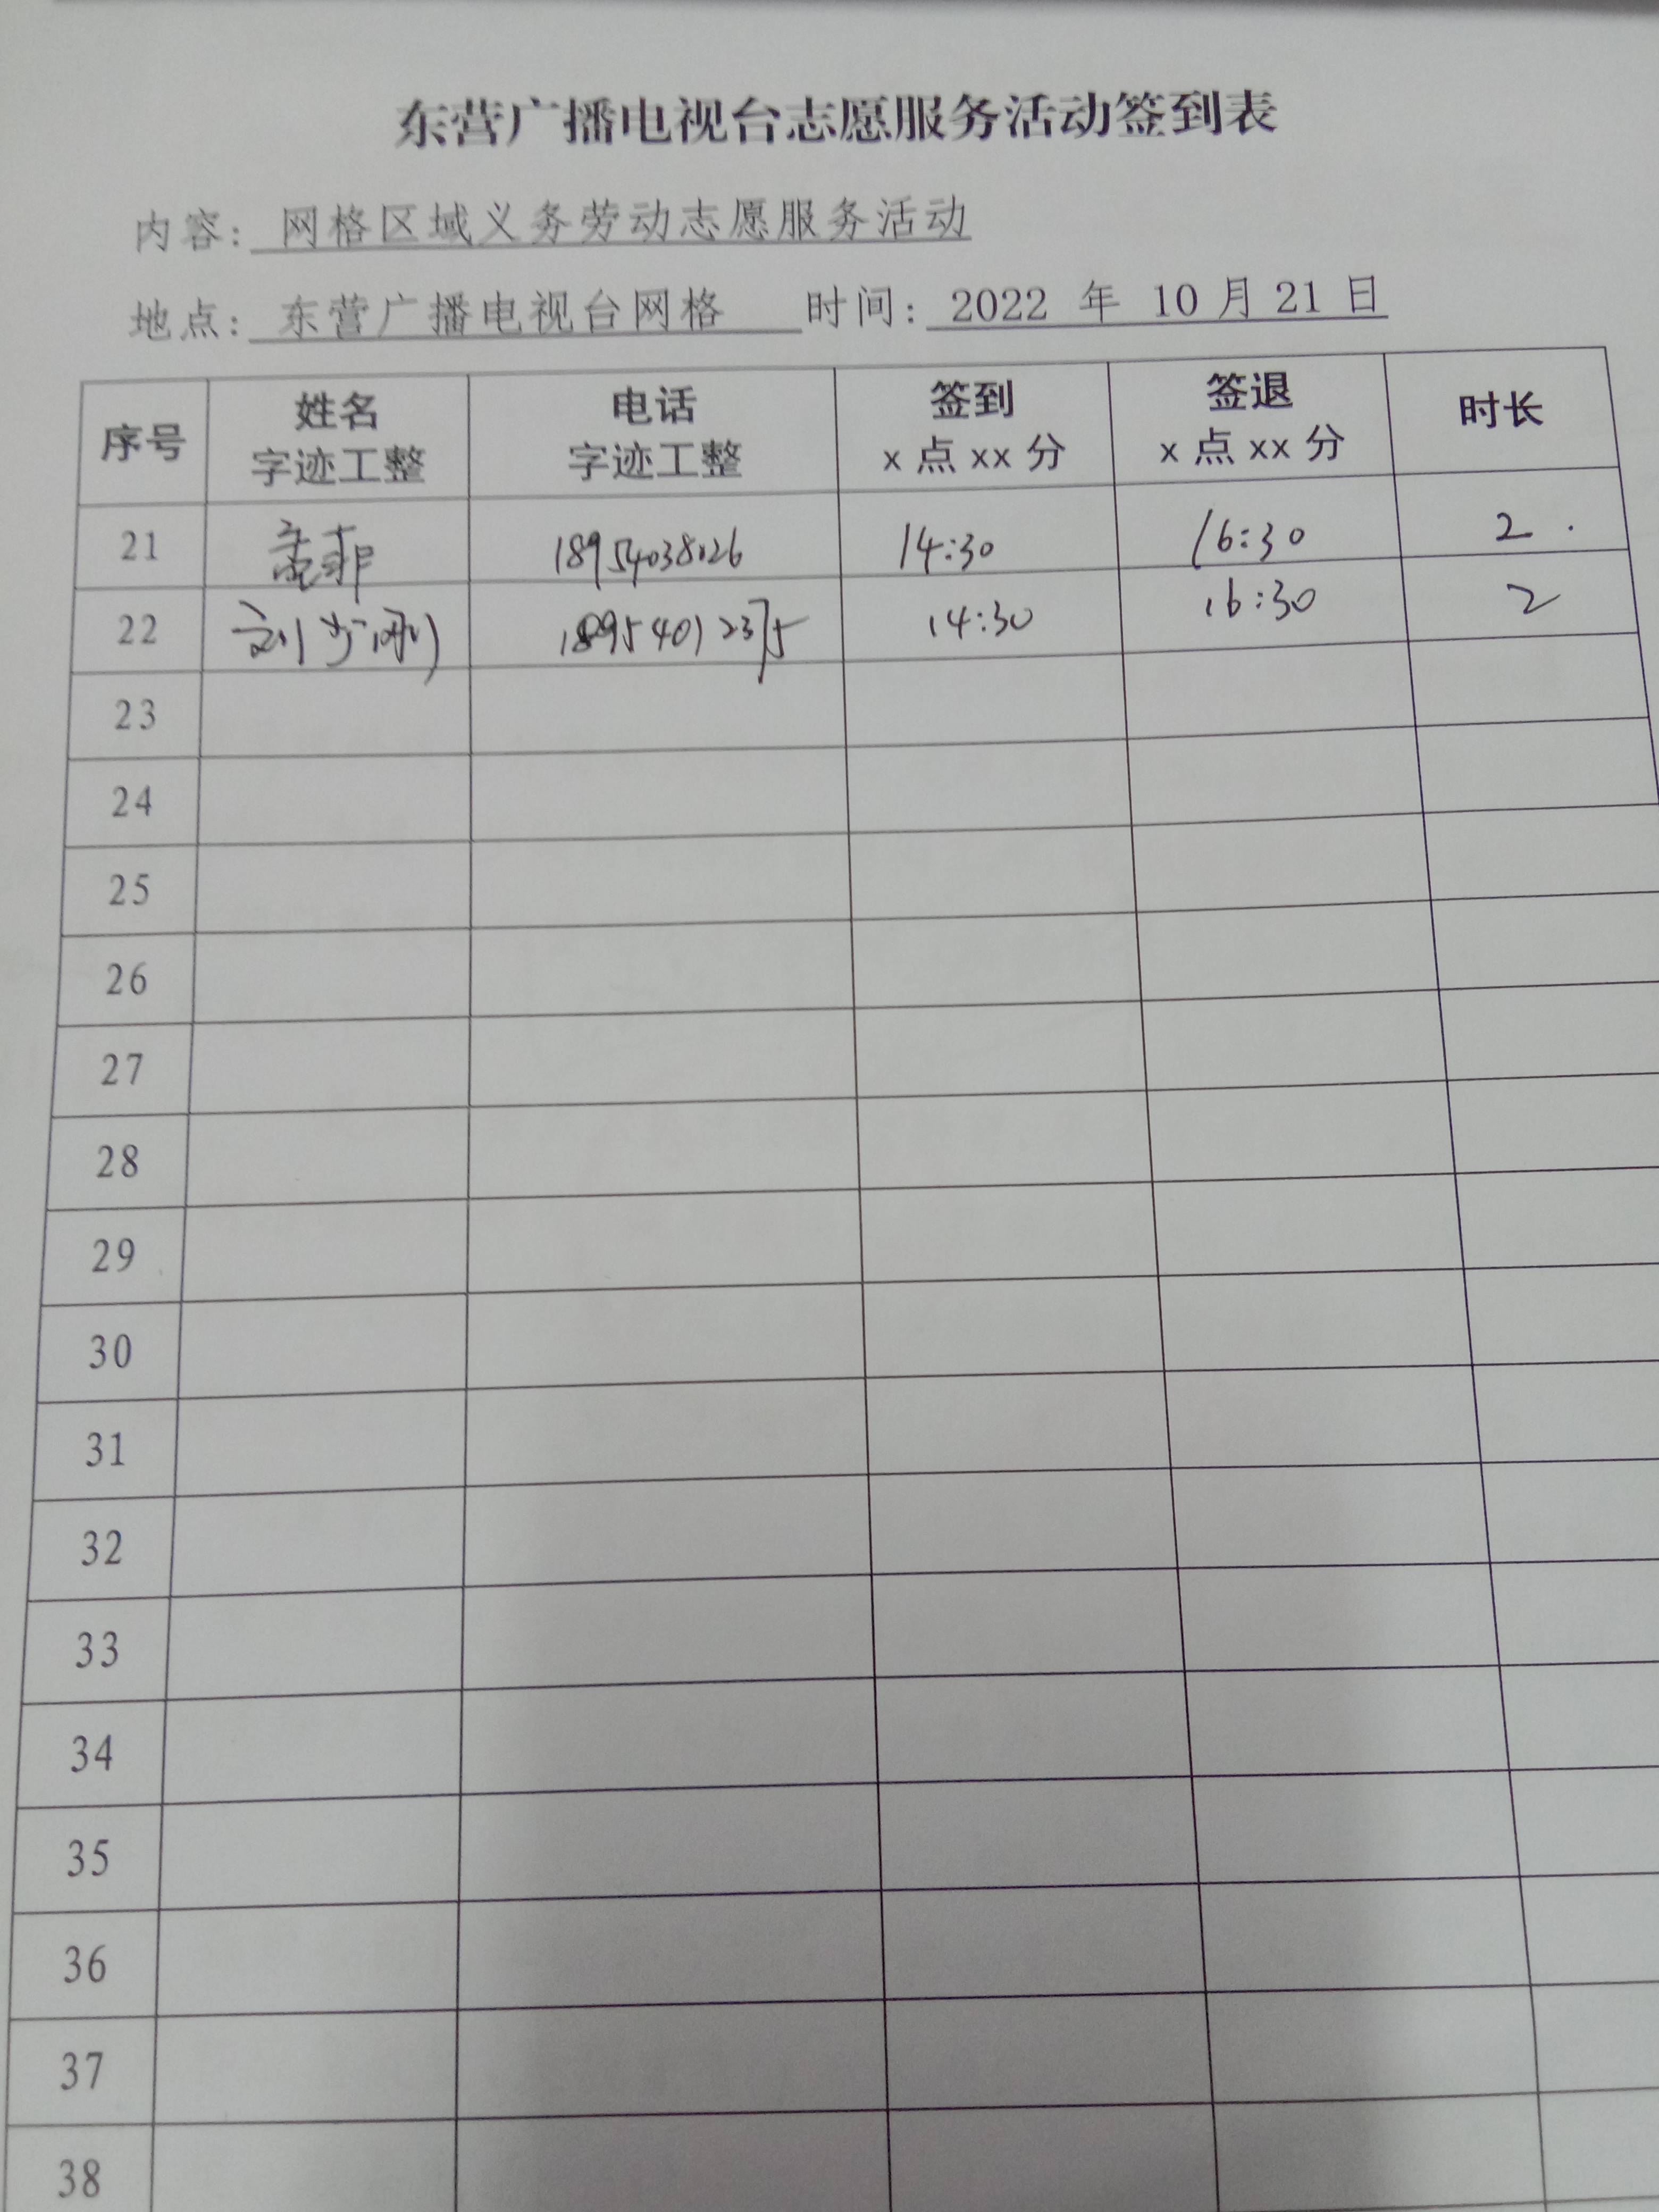 东营广播电视台志愿服务活动签到表
内容: 网格区域义务劳动志愿服务活动
地点: 东营广播电视台网格 时间: 2022 年 10 月 21 日
序号 姓名 电话 签到 签退 时长
字迹工整 字迹工整 x 点 xx 分 x 点 xx 分
21 18954038126 14:30 16:30 2
22 刘 18954012375 14:30 16:30 2
23
24
25
26
27
28
29
30
31
32
33
34
35
36
37
38